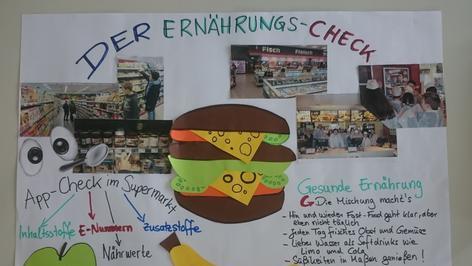 DER ERNÄHRUNGS-CHECK
Fisch Fleisch
App-Check im Supermarkt
Inhaltsstoffe E-Nummern Zusatzstoffe
Nährwerte
Gesunde Ernährung
Die Mischung macht's
- Hin und wieder Fast-Food geht klar, aber
eben nicht täglich
- Jeden Tag frisches Obst und Gemüse
- Lieber Wasser als Softdrinks wie
Limo und Cola
- Süßigkeiten in Maßen genießen!